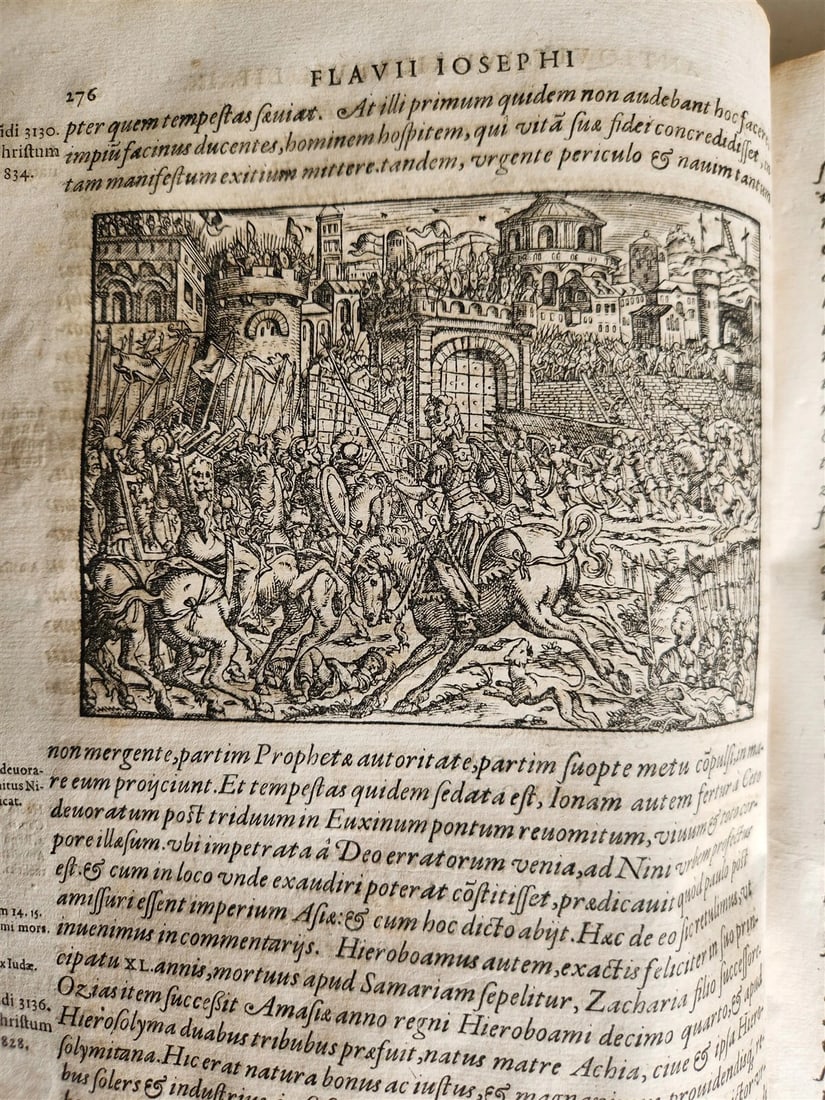 276
FLAVII IOSEPHI
idi 3130.
hristum
834.
pter quem tempeſtas ſæuiat. At illi primum quidem non audebant hoc facere
impiũ facinus ducentes, hominem hoſpitem, qui vitã ſuæ fidei concredidiſſet,
tam manifeſtum exitium mittere. tandem, vrgente periculo & nauim tantum
non mergente, partim Prophetæ autoritate, partim ſuopte metu cõpulſi, in ma-
re eum proijciunt. Et tempeſtas quidem ſedata eſt, Ionam autem fertur a Ceto
deuoratum poſt triduum in Euxinum pontum reuomitum, viuum & toto cor-
pore illæſum. vbi impetrata â Deo erratorum venia, ad Nini vrbem profectus
eſt. & cum in loco vnde exaudiri poterat cõſtitiſſet, prædicauit quod paulo poſt
amiſſuri eſſent imperium Aſiæ: & cum hoc dicto abijt. Hæc de eo ſic retulimus, vt
inuenimus in commentarijs. Hieroboamus autem, exactis feliciter in ſuo prin-
cipatu XL. annis, mortuus apud Samariam ſepelitur, Zacharia filio ſucceſſore.
Ozias item ſucceſsit Amaſiæ anno regni Hieroboami decimo quarto, & apud
Hieroſolyma duabus tribubus præfuit, natus matre Achia, ciue & ipſa Hiero-
ſolymitana. Hic erat natura bonus ac iuſtus, & magnanimus, prouidendisq́; re-
bus ſolers & induſtrius
deuora-
nitus Ni-
icat.
m 14. 15.
mi mors.
x Iudæ.
di 3136.
hriſtum
828.